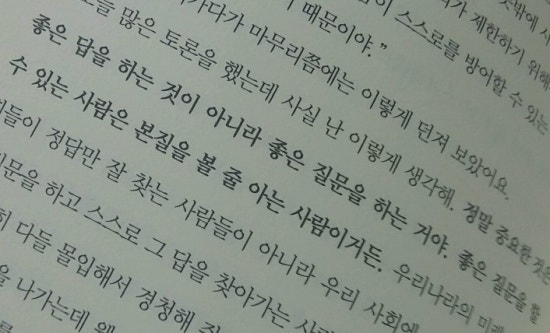 스스로를 방어할 수 있는
제한하기 위해
때문이야."
많은 토론을 했는데 사실 난 이렇게 생각해. 정말 중요한 것은
마무리쯤에는 이렇게 던져 보았어요.
좋은 답을 하는 것이 아니라 좋은 질문을 하는 거야. 좋은 질문을 할
수 있는 사람은 본질을 볼 줄 아는 사람이거든. 우리나라의
정답만 잘 찾는 사람들이 아니라 우리 사회에
하고 스스로 그 답을 찾아가는
다들 몰입해서 경청해
나가는데